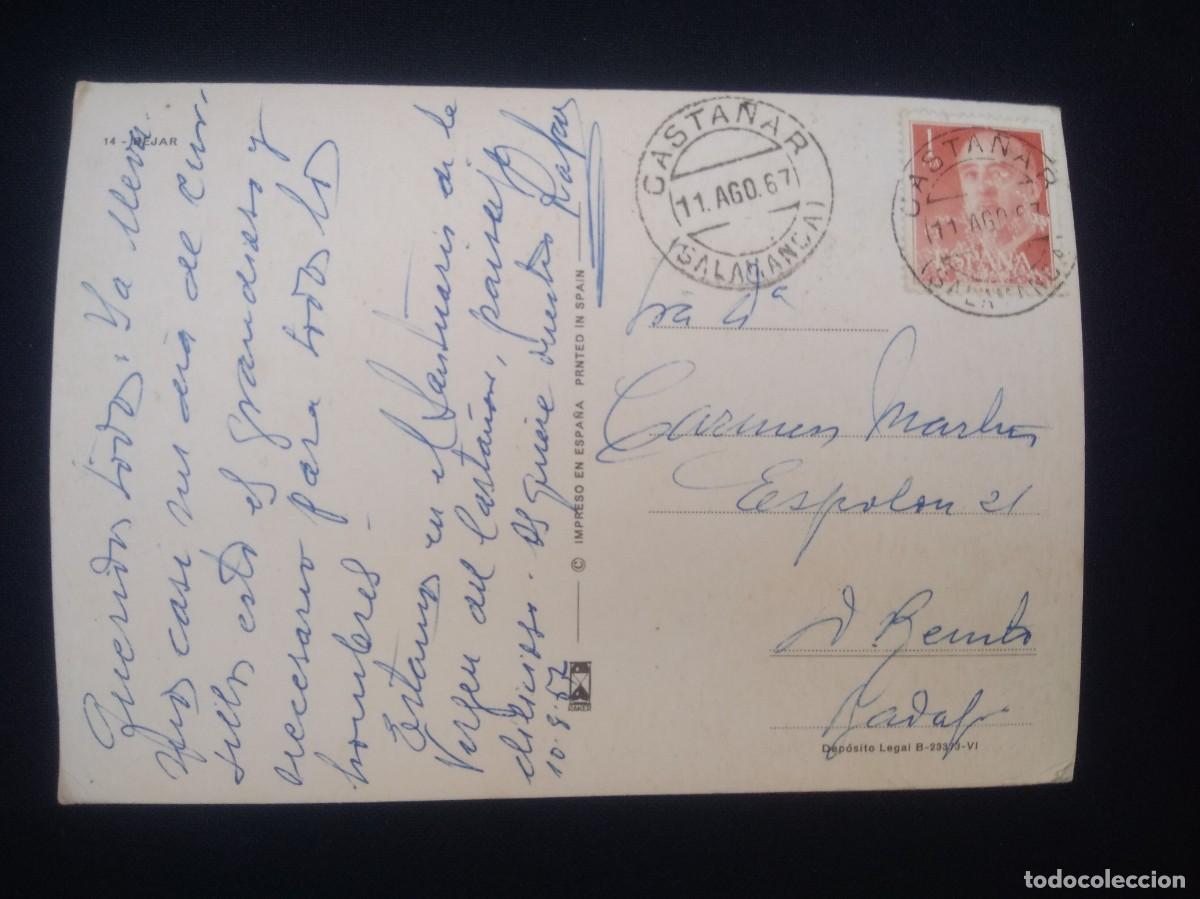 14 - BEJAR
Queridos todos: Ya lleva-
mos casi un dia de cur-
sillo esto es grandioso y
necesario para todos los
hombres -
Estamos en el Santuario de la
Virgen del Castañar, paisaje
delicioso. Os quiere vuestro
10.8.67
RAKER
© IMPRESO EN ESPAÑA PRNTED IN SPAIN
CASTAÑAR
11. AGO. 67
(SALAMANCA)
1
ESPAÑA
CASTAÑAR
11. AGO. 67
(SALAMANCA)
Sra Dª
Carmen Martin
Espolon 21
D. Benito
Badajoz
Depósito Legal B-23373-VI
todocoleccion